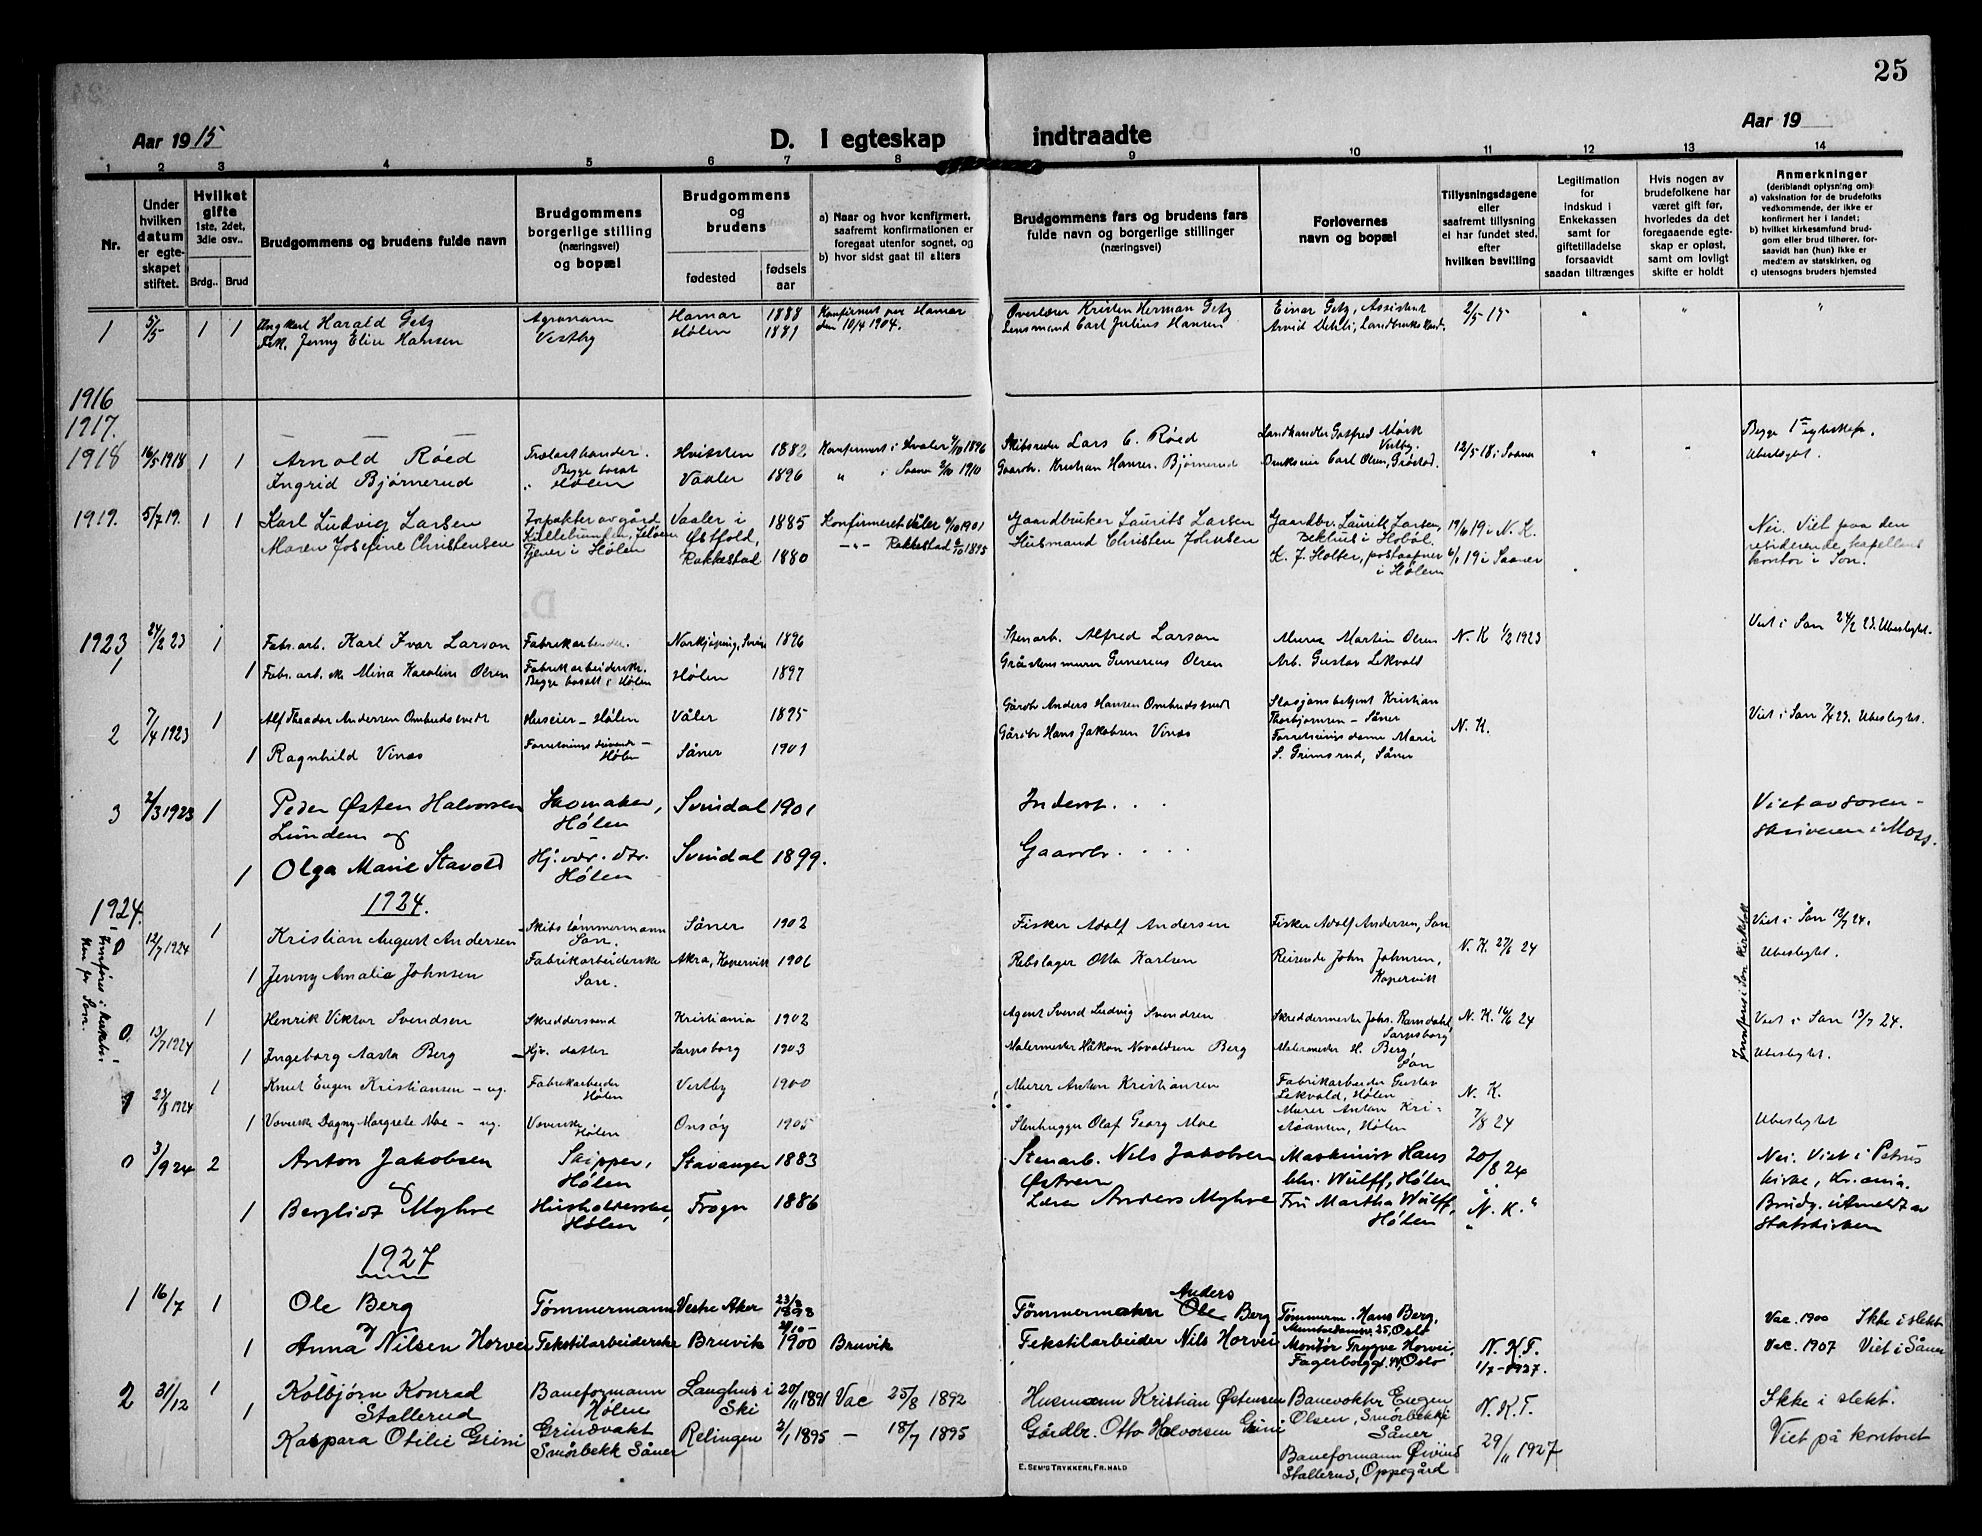 25
Aar 1915
D. I egteskap indtraadte
Aar 19
1 2 3 4 5 6 7 8 9 10 11 12 13 14
Nr.
Under hvilken datum er egteskapet stiftet.
Hvilket gifte 1ste, 2det, 3die osv..
Brdg.. Brud
Brudgommens og brudens fulde navn
Brudgommens borgerlige stilling (næringsvei) og bopæl
Brudgommens og brudens
fødested
fødsels aar
a) Naar og hvor konfirmert, saafremt konfirmationen er foregaat utenfor sognet, og
b) hvor sidst gaat til alters
Brudgommens fars og brudens fars fulde navn og borgerlige stillinger (næringsvei)
Forlovernes navn og bopæl
Tillysningsdagene eller saafremt tillysning ei har fundet sted, efter hvilken bevilling
Legitimation for indskud i Enkekassen samt for giftetilladelse forsaavidt saadan tiltrænges
Hvis nogen av brudefolkene har været gift før, hvorledes da det foregaaende egteskap er opløst, samt om lovligt skifte er holdt
Anmerkninger
(deriblandt oplysning om):
a) vaksination for de brudefolks vedkommende, der ikke er konfirmert her i landet;
b) hvilket kirkesamfund brudgom eller brud tilhører, forsaavidt han (hun) ikke er medlem av statskirken, og
c) utensogns bruders hjemsted
1 5/5 1 1 Ungkarl Harald Getz Agronom Hamar 1888 Konfirmert Hamar Overlærer Kristen Herman Getz Einar Getz, Assistent 2/5 15 " " "
Frk. Jenny Elise Hansen Vestby Hølen 1881 den 10/4 1904. Lensmand Carl Julius Hansen Arvid Dehli, Landbrukskand.
1916
1917. — — —
1918 16/5 1918 1 1 Arnold Røed Trælasthandler. Hvitsten 1882 Konfirmert i Vaaler 1896 Skibsreder Lars C. Røed Landhandler Gotfred Mørk Vestby. 12/5 18 i Saaner Begge 1ste egteskap.
Ingrid Bjørnerud Begge bosat Hølen Vaaler 1896 " i Saaner 1910 Gaardbr. Kristian Hansen Bjørnerud Brukseier Carl Olsen, Grøstad. Ubeslegtet.
1919. 5/7 19. 1 1 Karl Ludvig Larsen Inspektør av gård Vaaler i Østfold, 1885 Konfirmeret Våler 1901 Gaardbruker Laurits Larsen Gaardbr. Laurits Larsen, i Hobøl. 19/6 19 i N. K. Nei. Viet paa den
Maren Josefine Christensen Kullebunden, Jeløen Tjener i Hølen Rakkestad 1880 —"— Rakkestad 1895 Husmand Christen Johnsen K. J. Holter, postaapner i Hølen 19 i Saaner residerende kapellans kontor i Son.
1923 24/2 23 1 Fabr. arb. Karl Ivar Larson Fabrikarbeider. Norkjøping, 1896 Stenarb. Alfred Larson Murer Martin Olsen N. K 1/2 1923 Viet i Son 24/2 23. Ubeslegtet.
1 1 Fabr. arb. ske Mina Karoline Olsen Fabrikarbeiderske. Begge bosatt i Hølen Hølen 1897 Gråstensmurer Gunerius Olsen Arb. Gustav Lekvold
2 7/4 1923 1 Alf Theodor Andersen Ombudsvedt Huseier – Hølen Våler 1895 Gårdbr Anders Hansen Ombudsvedt Stasjonsbetjent Kristian Thorbjørnsen – Såner N. K. Viet i Son 7/4 23. Ubeslegtet.
1 Ragnhild Vinæs Forretningsdrivende – Hølen Såner 1901 Gårdbr Hans Jakobsen Vinæs Forretningsdame Marie S. Grimsrud, Såner
3 2/3 1923 1 Peder Østen Halvorsen Lunden og Skomaker, Hølen Svindal 1901 Inderst . . . Viet av sorenskriveren i Moss.
1 Olga Marie Stavold Hj. vær. dtr. Hølen Svindal 1899. Gaardbr. . . . .
1924. 1924.
0 12/7 1924 1 Kristian August Andersen Skibstømmermann Son. Såner 1902 Fisker Adolf Andersen Fisker Adolf Andersen, Son N. K. 27/6 24 Viet i Son 12/7 24.
1 Jenny Amalie Johnsen Fabrikarbeiderske Son. Akra, Kopervik 1906 Rebslager Otto Karlsen Reisende John Johnsen, Kopervik Ubeslegtet.
0 13/7 1924 1 Henrik Viktor Svendsen Skreddersvend Kristiania 1902 Agent Svend Ludvig Svendsen Skreddermester Johs. Ramdahl, Sarpsborg N. K. 14/6 24 Viet i Son 13/7 24.
1 Ingeborg Aasta Berg Hjv. datter Sarpsborg 1903 Malermester Håkon Novaldsen Berg Malermester H. Berg Son Ubeslegtet.
Innføres i Son kirkebok
1 23/8 1924 1 Knut Eugen Kristiansen – ug. Fabrikarbeider Hølen Vestby 1900 Murer Anton Kristiansen Fabrikarbeider Gustav Lekvold, Hølen N. K.
1 Væverske Dagny Margrete Moe – ug. Væverske Hølen Onsøy 1905 Stenhugger Olaf Georg Moe Murer Anton Kristiansen, Hølen 7/8 24 Ubeslegtet
0 3/9 24 2 Anton Jakobsen Skipper, Hølen Stavanger 1883 Stenarb. Nils Jakobsen Østrem Maskinist Hans Chr. Wulff, Hølen 20/8 24 Nei. Viet i Petrus kirke, Kr.ania.
og
1 Bergliot Myhre Husholderske, Hølen Frogn 1886 Lærer Anders Myhre Fru Martha Wulff, Hølen "N. K." Brudg. utmeldt av statskirken
1927
1 16/7 1 Ole Berg Tømmermann Vestre Aker 23/8 1898 Tømmermann Anders Ole Berg Tømmerm. Hans Berg, 25, Oslo Vac. 1900 Ikke i slekt
og
1 Anna Nilsen Horvei Tekstilarbeiderske Bruvik 1900 Bruvik Tekstilarbeider Nils Horvei Montør Trygve Horvei, Fagerborggt. Oslo N. K. T. 1/7–1927. Vac. 1907 Viet i Såner
2 31/12 1 Kolbjørn Konrad Stallerud Baneformann Hølen Langhus i Ski 20/11 1891 Vac 25/8 1892 Husmann Kristian Østensen Banevokter Eugen Olsen, Smørbekk Såner N. K. T. Ikke i slekt.
1 Kaspara Otilie Grini Grindvakt Smørbekk Såner Relingen 2/1 1895 — 18/7 1895 Gårdbr. Otto Halvorsen Grini Baneformann Øivind Stallerud, Oppegård 29/11 1927 Viet på kontoret
E. SEM'S TRYKKERI, FR.HALD